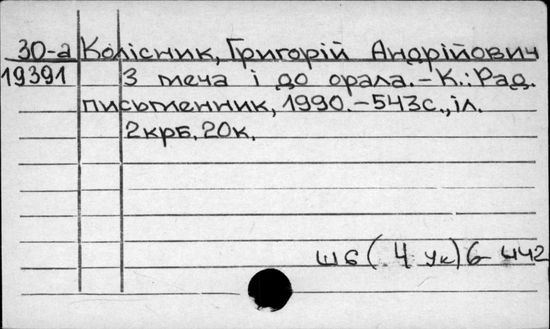 30-а Колісник, Григорій Андрійович
19391 З меча і до орала.-К.:Рад.
письменник, 1990.-543с.,іл.
2крб.20к.
ш6(4 Ук)6-442